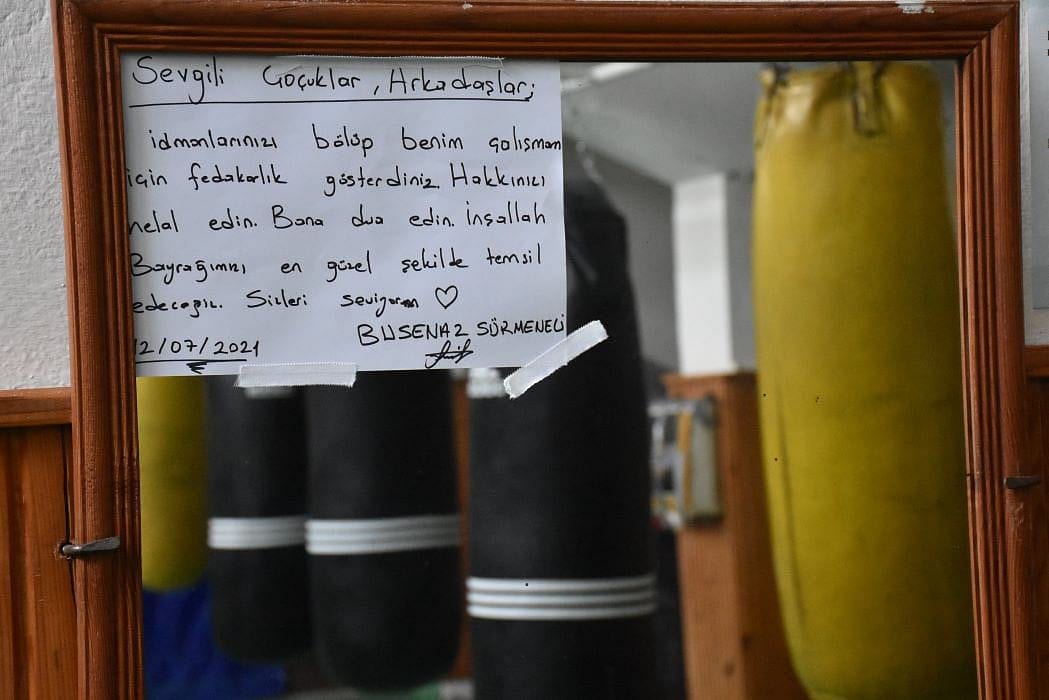 Sevgili Çoçuklar, Arkadaşlar;
idmanlarınızı bölüp benim çalışmam
için fedakarlık gösterdiniz. Hakkınızı
helal edin. Bana dua edin. İnşallah
Bayrağımızı en güzel şekilde temsil
edeceğiz. Sizleri seviyorum ♡
BUSENAZ SÜRMENELİ
12/07/2021